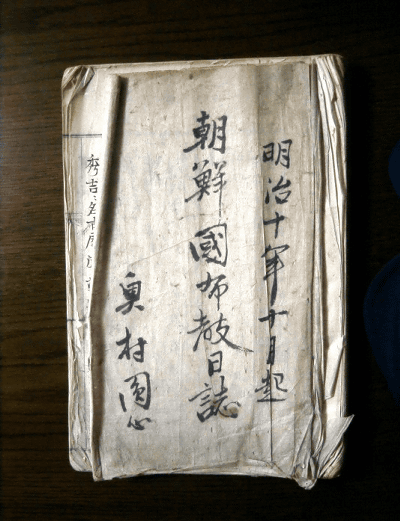 明治十年十月起
朝鮮國布教日誌
奥村圓心
秀吉